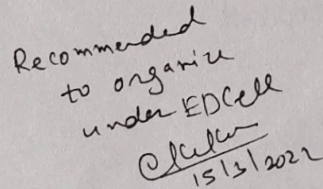 Recommended
to organize
under EDCell
15/3/2022